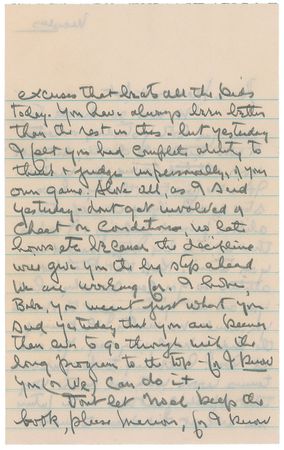 excuses that beats all the kids
today. You have always been better
than the rest in this - but yesterday
I felt you had complete ability to
think & judge impersonally, of your
own game. Above all, as I said
yesterday - dont get involved or
cheat on Conditions, no late
hours etc because the discipline
will give you the big step ahead
we are working for. I know,
Babe, you meant just what you
said yesterday that you are keener
than ever to go through with the
long program to the top - for I know
you (or we) can do it.
Dont let Noel keep the
book, please, for I know